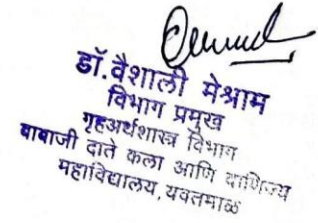 डॉ.वैशाली मेश्राम
विभाग प्रमुख
गृहअर्थशास्त्र विभाग
बाबाजी दाते कला आणि वाणिज्य
महाविद्यालय, यवतमाळ